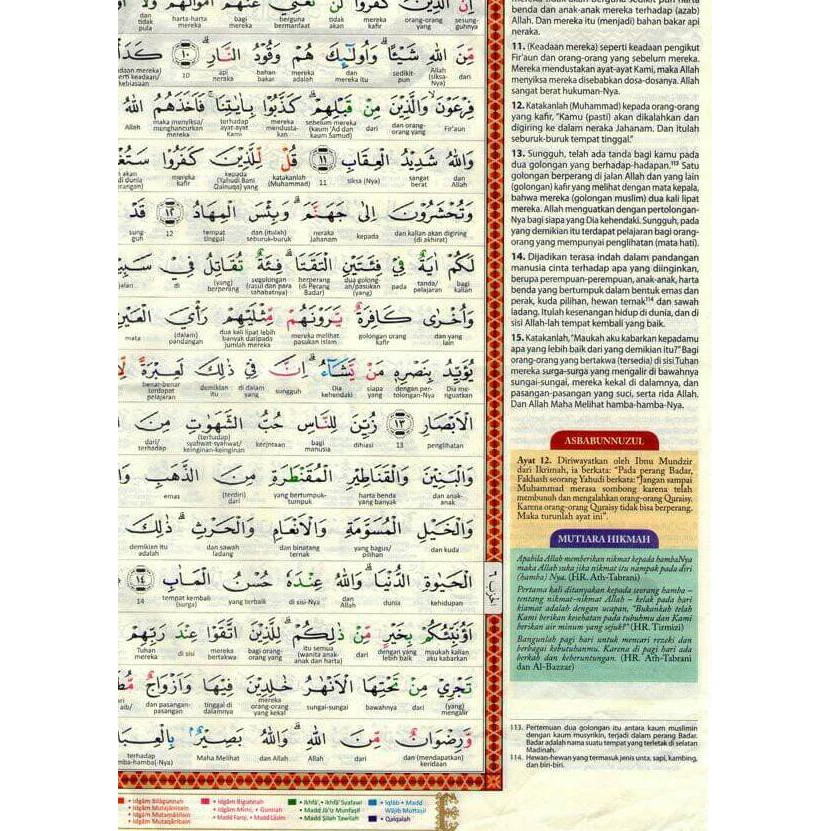 إِنَّ الَّذِينَ كَفَرُوا لَنْ تُغْنِيَ عَنْهُمْ أَمْوَالُهُمْ وَلَا
sesungguhnya orang-orang yang kafir tidak akan berguna bermanfaat bagi mereka harta-harta mereka dan tidak pula
مِّنَ اللّٰهِ شَيْئًا ۗ وَأُولٰٓئِكَ هُمْ وَقُودُ النَّارِ ۙ ١٠ كَدَأْ
dari Allah (siksa-Nya) sedikit pun dan mereka itu mereka adalah bahan bakar api neraka 10
فِرْعَوْنَ ۙ وَالَّذِينَ مِنْ قَبْلِهِمْ ۗ كَذَّبُوا بِآيَاتِنَا ۚ فَأَخَذَهُمُ اللّٰهُ
Fir'aun dan orang-orang yang dari sebelum mereka (kaum 'Ad dan kaum Samud) mereka mendustakan terhadap ayat-ayat Kami maka menyiksa/menghancurkan mereka Allah
وَاللّٰهُ شَدِيدُ الْعِقَابِ ١١ قُلْ لِّلَّذِينَ كَفَرُوا سَتُغْ
dan Allah sangat berat siksa (Nya) 11 katakanlah (Muhammad) kepada (Yahudi Bani Qainuqa) yang mereka kafir
وَتُحْشَرُونَ إِلَىٰ جَهَنَّمَ ۗ وَبِئْسَ الْمِهَادُ ١٢ قَدْ
dan kalian akan digiring (di akhirat) kepada neraka Jahanam dan (itulah) seburuk-buruk tempat tinggal 12 sungguh
لَكُمْ آيَةٌ فِي فِئَتَيْنِ الْتَقَتَا ۗ فِئَةٌ تُقَاتِلُ فِي سَبِي
bagi kalian tanda/pelajaran pada dua golongan/pasukan (yang) berperang (di Perang Badar) segolongan (rasul dan para sahabatnya) (yang) berperang di jalan
وَأُخْرَىٰ كَافِرَةٌ يَّرَوْنَهُمْ مِّثْلَيْهِمْ رَأْيَ الْعَيْنِ
dan yang lain golongan orang kafir mereka melihat pasukan Islam dua kali lipat lebih banyak daripada jumlah mereka (dalam) pandangan mata
يُؤَيِّدُ بِنَصْرِهٖ مَنْ يَّشَآءُ ۗ إِنَّ فِي ذٰلِكَ لَعِبْرَةً لِّا
Dia menguatkan dengan pertolongan-Nya siapa yang Dia kehendaki sungguh di dalam demikian itu benar-benar terdapat pelajaran
الْاَبْصَارِ ١٣ زُيِّنَ لِلنَّاسِ حُبُّ الشَّهَوٰتِ مِنَ
penglihatan 13 dihiasi bagi manusia kecintaan (terhadap) syahwat-syahwat/keinginan-keinginan dari/terhadap
وَالْبَنِيْنَ وَالْقَنَاطِيْرِ الْمُقَنْطَرَةِ مِنَ الذَّهَبِ وَ
dan anak-anak harta benda yang banyak yang bertumpuk-tumpuk (terdiri) dari emas
وَالْخَيْلِ الْمُسَوَّمَةِ وَالْاَنْعَامِ وَالْحَرْثِ ۗ ذٰلِكَ
dan kuda yang bagus/pilihan dan binatang ternak dan sawah ladang demikian itu adalah
الْحَيٰوةِ الدُّنْيَا ۚ وَاللّٰهُ عِنْدَهٗ حُسْنُ الْمَاٰبِ ١٤
kehidupan dunia dan Allah di sisi-Nya yang terbaik tempat kembali (surga) 14
اَؤُنَبِّئُكُمْ بِخَيْرٍ مِّنْ ذٰلِكُمْ ۗ لِلَّذِيْنَ اتَّقَوْا عِنْدَ رَبِّهِمْ
maukah kalian aku kabarkan dengan yang lebih baik dari itu semua (wanita anak-anak dan harta) bagi orang-orang yang mereka bertakwa di sisi Tuhan mereka
تَجْرِيْ مِنْ تَحْتِهَا الْاَنْهٰرُ خٰلِدِيْنَ فِيْهَا وَاَزْوَاجٌ مُّطَ
(yang) mengalir dari bawahnya sungai-sungai mereka orang-orang yang kekal tinggal di dalamnya dan pasangan-pasangan
وَّرِضْوَانٌ مِّنَ اللّٰهِ ۗ وَاللّٰهُ بَصِيْرٌۢ بِالْعِبَا
dan (mendapatkan) keridaan dari Allah dan Allah Maha Melihat terhadap hamba-hamba(-Nya)
benda dan anak-anak mereka terhadap (azab)
Allah. Dan mereka itu (menjadi) bahan bakar api
neraka.
11. (Keadaan mereka) seperti keadaan pengikut
Fir'aun dan orang-orang yang sebelum mereka.
Mereka mendustakan ayat-ayat Kami, maka Allah
menyiksa mereka disebabkan dosa-dosanya. Allah
sangat berat hukuman-Nya.
12. Katakanlah (Muhammad) kepada orang-orang
yang kafir, "Kamu (pasti) akan dikalahkan dan
digiring ke dalam neraka Jahanam. Dan itulah
seburuk-buruk tempat tinggal."
13. Sungguh, telah ada tanda bagi kamu pada
dua golongan yang berhadap-hadapan.¹¹³ Satu
golongan berperang di jalan Allah dan yang lain
(golongan) kafir yang melihat dengan mata kepala,
bahwa mereka (golongan muslim) dua kali lipat
mereka. Allah menguatkan dengan pertolongan-
Nya bagi siapa yang Dia kehendaki. Sungguh, pada
yang demikian itu terdapat pelajaran bagi orang-
orang yang mempunyai penglihatan (mata hati).
14. Dijadikan terasa indah dalam pandangan
manusia cinta terhadap apa yang diinginkan,
berupa perempuan-perempuan, anak-anak, harta
benda yang bertumpuk dalam bentuk emas dan
perak, kuda pilihan, hewan ternak¹¹⁴ dan sawah
ladang. Itulah kesenangan hidup di dunia, dan di
sisi Allah-lah tempat kembali yang baik.
15. Katakanlah, "Maukah aku kabarkan kepadamu
apa yang lebih baik dari yang demikian itu?" Bagi
orang-orang yang bertakwa (tersedia) di sisi Tuhan
mereka surga-surga yang mengalir di bawahnya
sungai-sungai, mereka kekal di dalamnya, dan
pasangan-pasangan yang suci, serta rida Allah.
Dan Allah Maha Melihat hamba-hamba-Nya.
ASBABUNNUZUL
Ayat 12. Diriwayatkan oleh Ibnu Mundzir
dari Ikrimah, ia berkata: "Pada perang Badar,
Fakhash seorang Yahudi berkata: "Jangan sampai
Muhammad merasa sombong karena telah
membunuh dan mengalahkan orang-orang Quraisy.
Karena orang-orang Quraisy tidak bisa berperang.
Maka turunlah ayat ini".
MUTIARA HIKMAH
Apabila Allah memberikan nikmat kepada hambaNya
maka Allah suka jika nikmat itu nampak pada diri
(hamba) Nya. (HR. Ath-Tabrani)
Pertama kali ditanyakan kepada seorang hamba –
tentang nikmat-nikmat Allah – kelak pada hari
kiamat adalah dengan ucapan, "Bukankah telah
Kami berikan kesehatan pada tubuhmu dan Kami
berikan air minum yang sejuk?" (HR. Tirmizi)
Bangunlah pagi hari untuk mencari rezeki dan
berbagai kebutuhanmu. Karena di pagi hari ada
berkah dan keberuntungan. (HR. Ath-Tabrani
dan Al-Bazzar)
113. Pertemuan dua golongan itu antara kaum muslimin
dengan kaum musyrikin, terjadi dalam perang Badar.
Badar adalah nama suatu tempat yang terletak di selatan
Madinah.
114. Hewan-hewan yang termasuk jenis unta, sapi, kambing,
dan biri-biri.
• Idgām Bilāgunnah • Idgām Bigunnah • Ikhfā', • Ikhfā' Syafawi • Iqlāb • Madd
• Idgām Mutajānisain • Idgām Mimi, • Gunnah • Madd Jā'iz Munfaṣil Wājib Muttaṣil
• Idgām Mutamāṡilain • Madd Farqi, • Madd Lāzim • Madd Ṣilah Ṭawīlah • Qalqalah
• Idgām Mutaqāribain